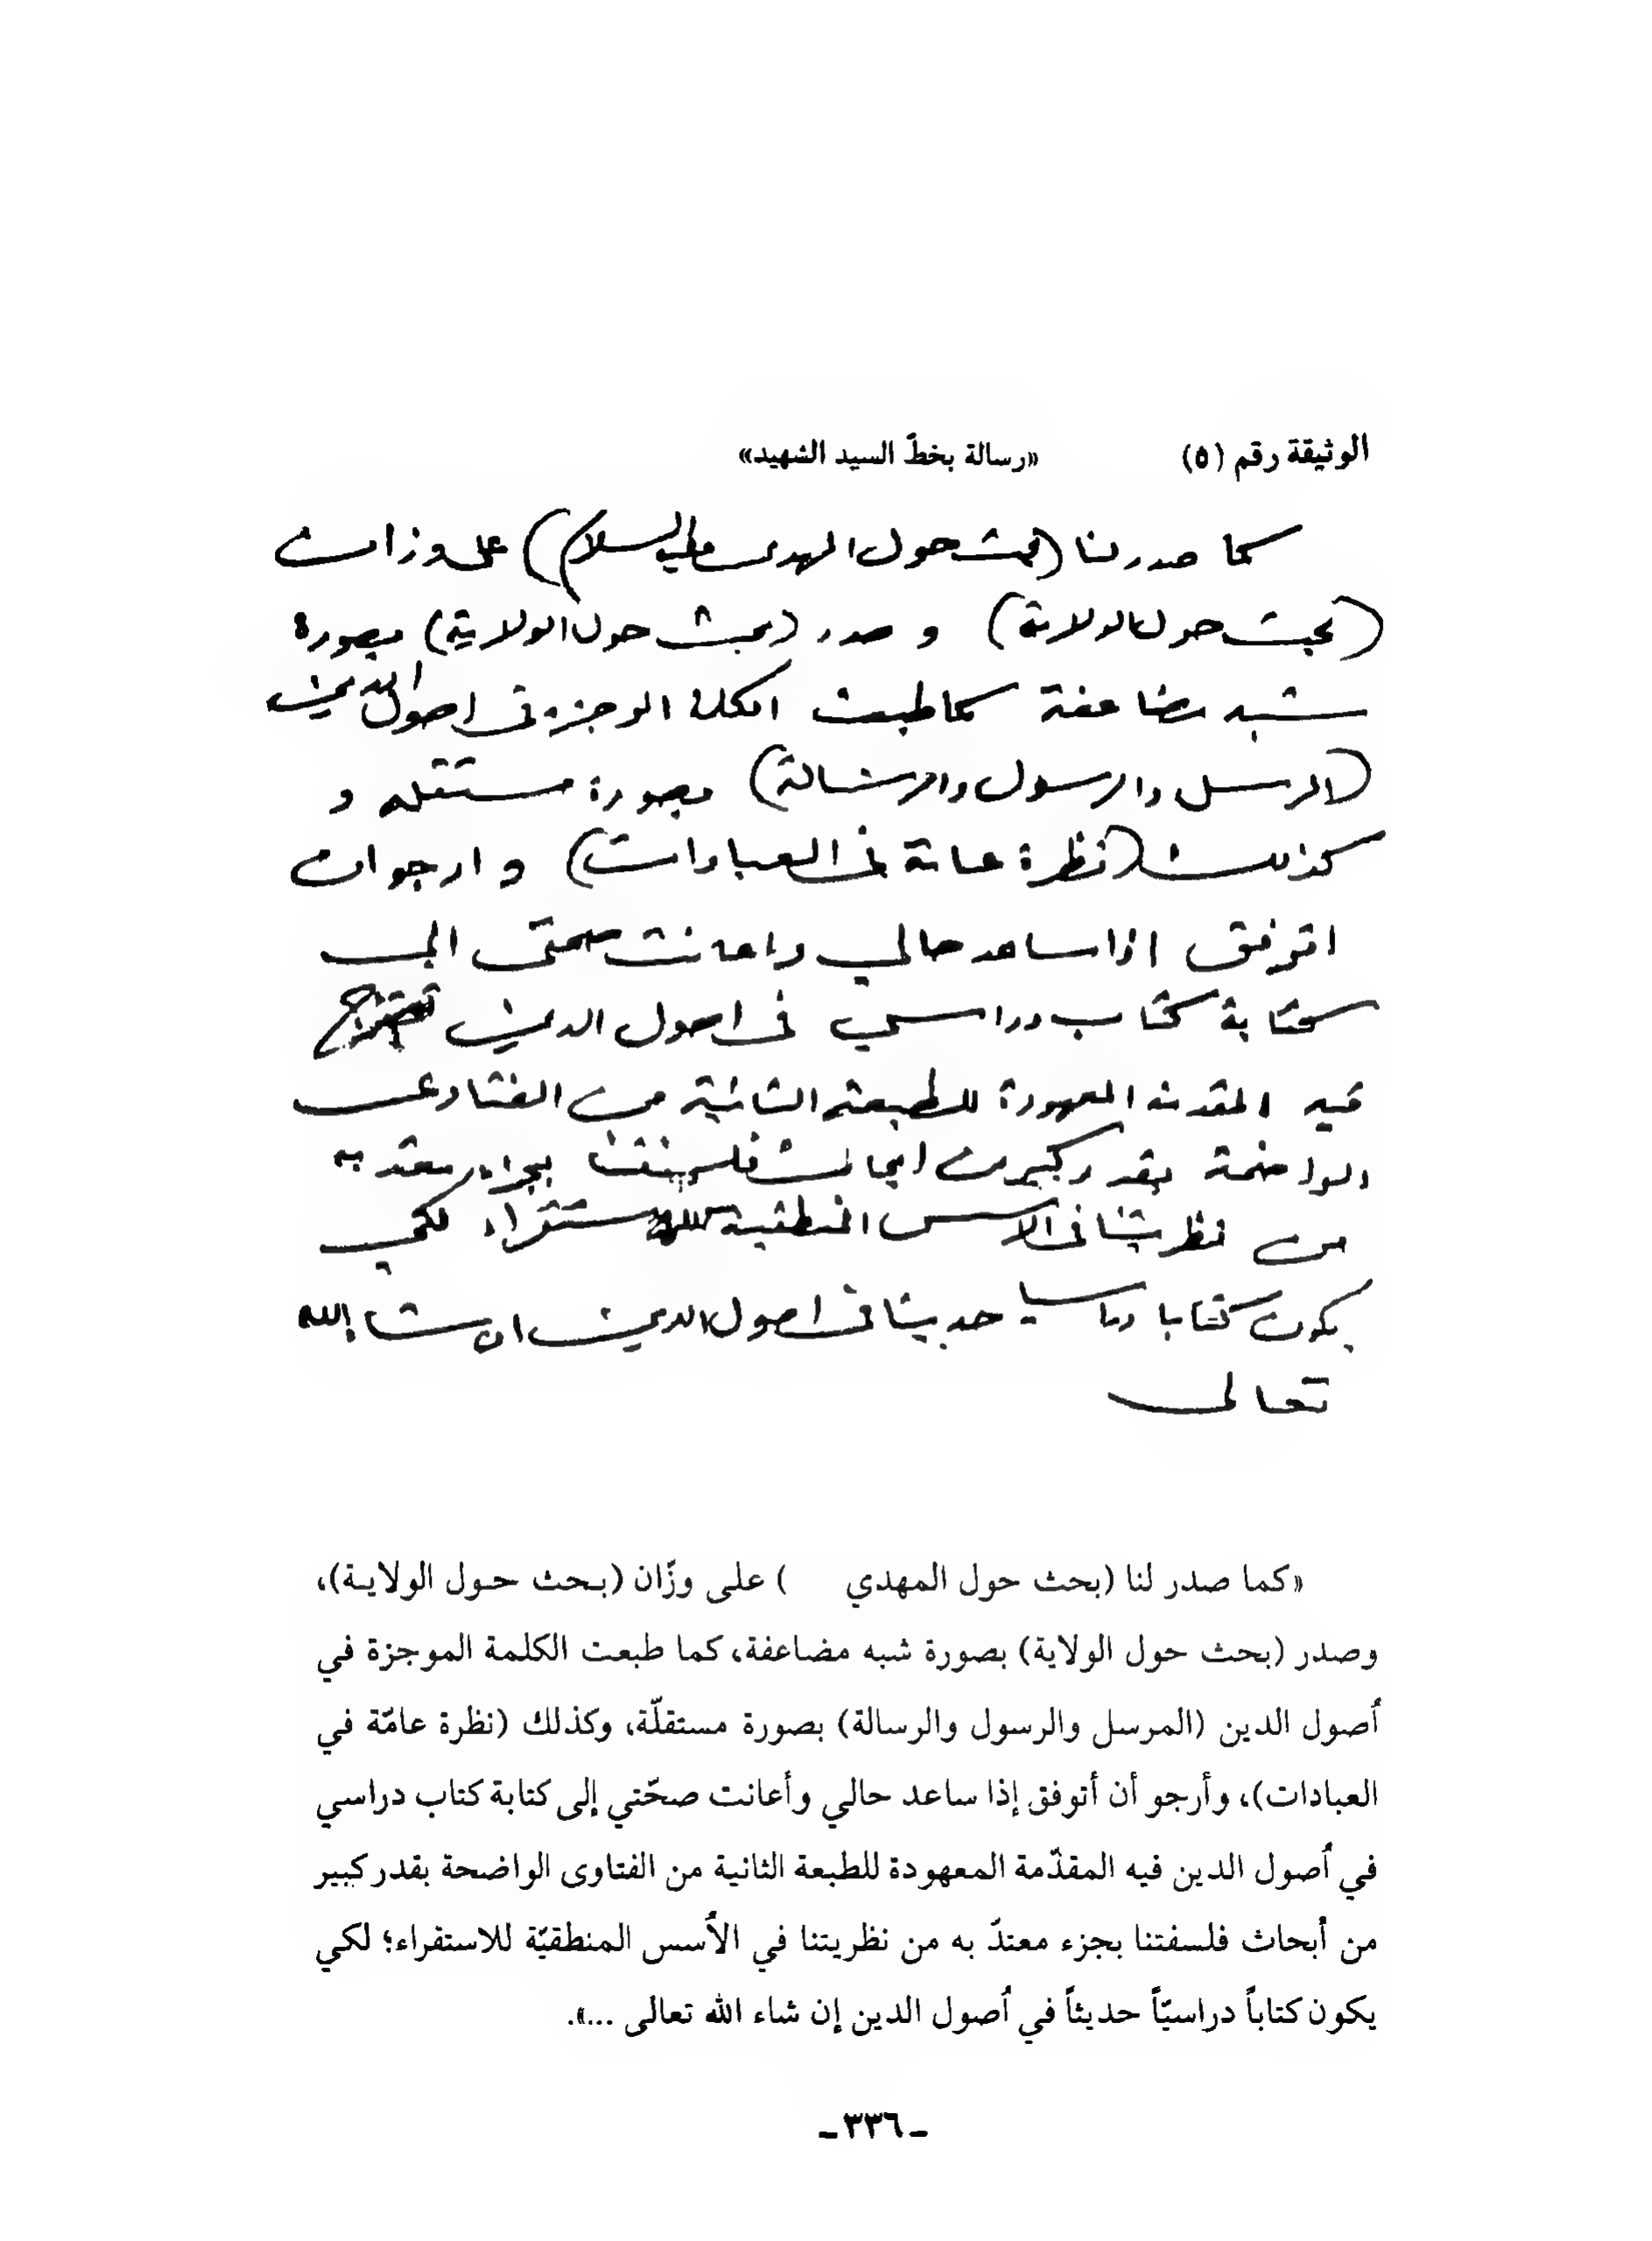 الوثيقة رقم (٥) «رسالة بخطّ السيد الشهيد»
كما صدر لنا (بحث حول المهدى عليه السلام) على وزان
(بحث حول الولاية) و صدر (بحث حول الولاية) بصورة
شبه مضاعفة كما طبعت الكلمة الموجزة فى اصول الدين
(المرسل والرسول والرسالة) بصورة مستقله و
كذلك (نظرة عامة فى العبادات) و ارجو ان
اتوفق اذا ساعد حالي واعانت صحتى الى
كتابة كتاب دراسي فى اصول الدين تمتزج
فيه المقدمة المعهودة للطبعة الثانية من الفتاوى
الواضحة بقدر كبير من ابحاث فلسفتنا بجزء معتد به
من نظريتنا فى الاسس المنطقية للاستقراء لكي
يكون كتابا دراسيا حديثا فى اصول الدين ان شاء الله
تعالى
«كما صدر لنا (بحث حول المهدي ) على وزّان (بحث حول الولاية)،
وصدر (بحث حول الولاية) بصورة شبه مضاعفة، كما طبعت الكلمة الموجزة في
أصول الدين (المرسل والرسول والرسالة) بصورة مستقلّة، وكذلك (نظرة عامّة في
العبادات)، وأرجو أن أتوفق إذا ساعد حالي وأعانت صحّتي إلى كتابة كتاب دراسي
في أصول الدين فيه المقدّمة المعهودة للطبعة الثانية من الفتاوى الواضحة بقدر كبير
من أبحاث فلسفتنا بجزء معتدّ به من نظريتنا في الأسس المنطقيّة للاستقراء؛ لكي
يكون كتاباً دراسيّاً حديثاً في أصول الدين إن شاء الله تعالى ...».
ـ ٣٣٦ ـ